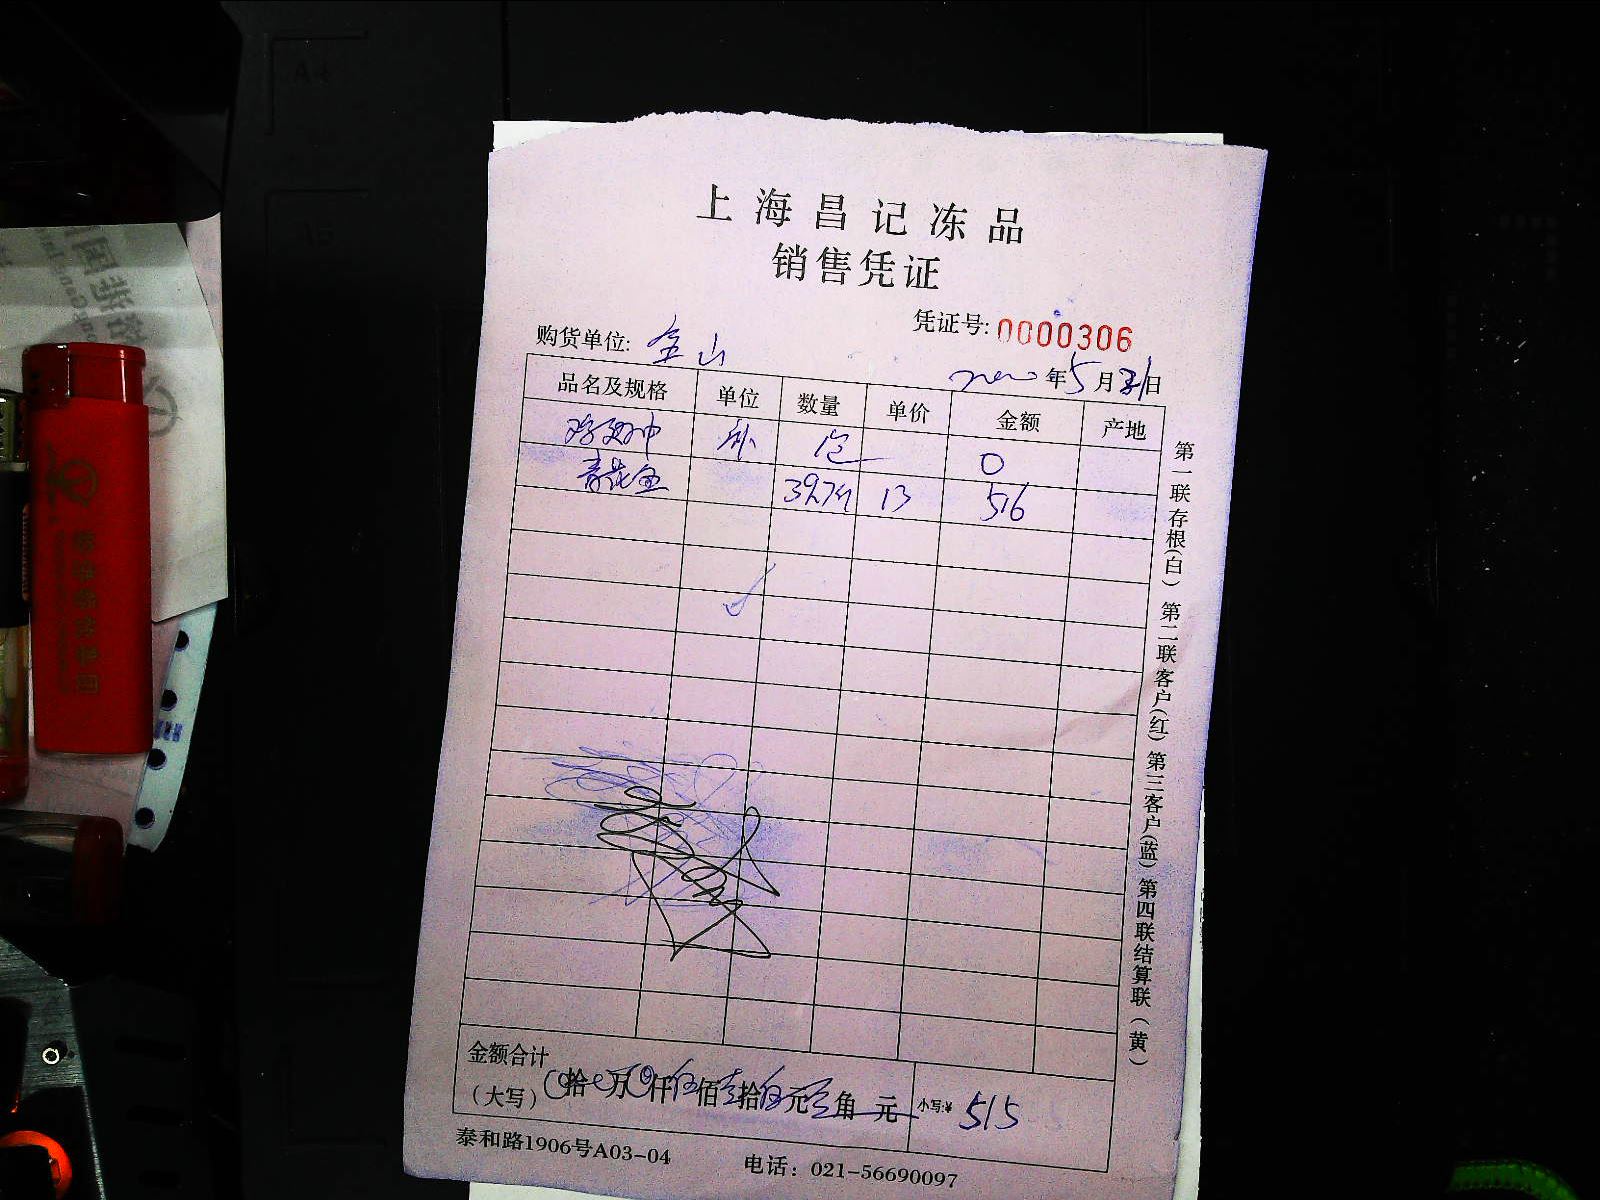 上海昌记冻品
销售凭证
凭证号: 0000306
购货单位: 金山
年5月31日
品名及规格 单位 数量 单价 金额 产地
鸡翅中 0
青花鱼 39.7斤 13 516
金额合计
(大写) 0拾0万0仟伍佰壹拾伍元 角 元 小写:¥ 515
泰和路1906号A03-04 电话: 021-56690097
第一联存根(白) 第二联客户(红) 第三客户(蓝) 第四联结算联(黄)
A4
A5